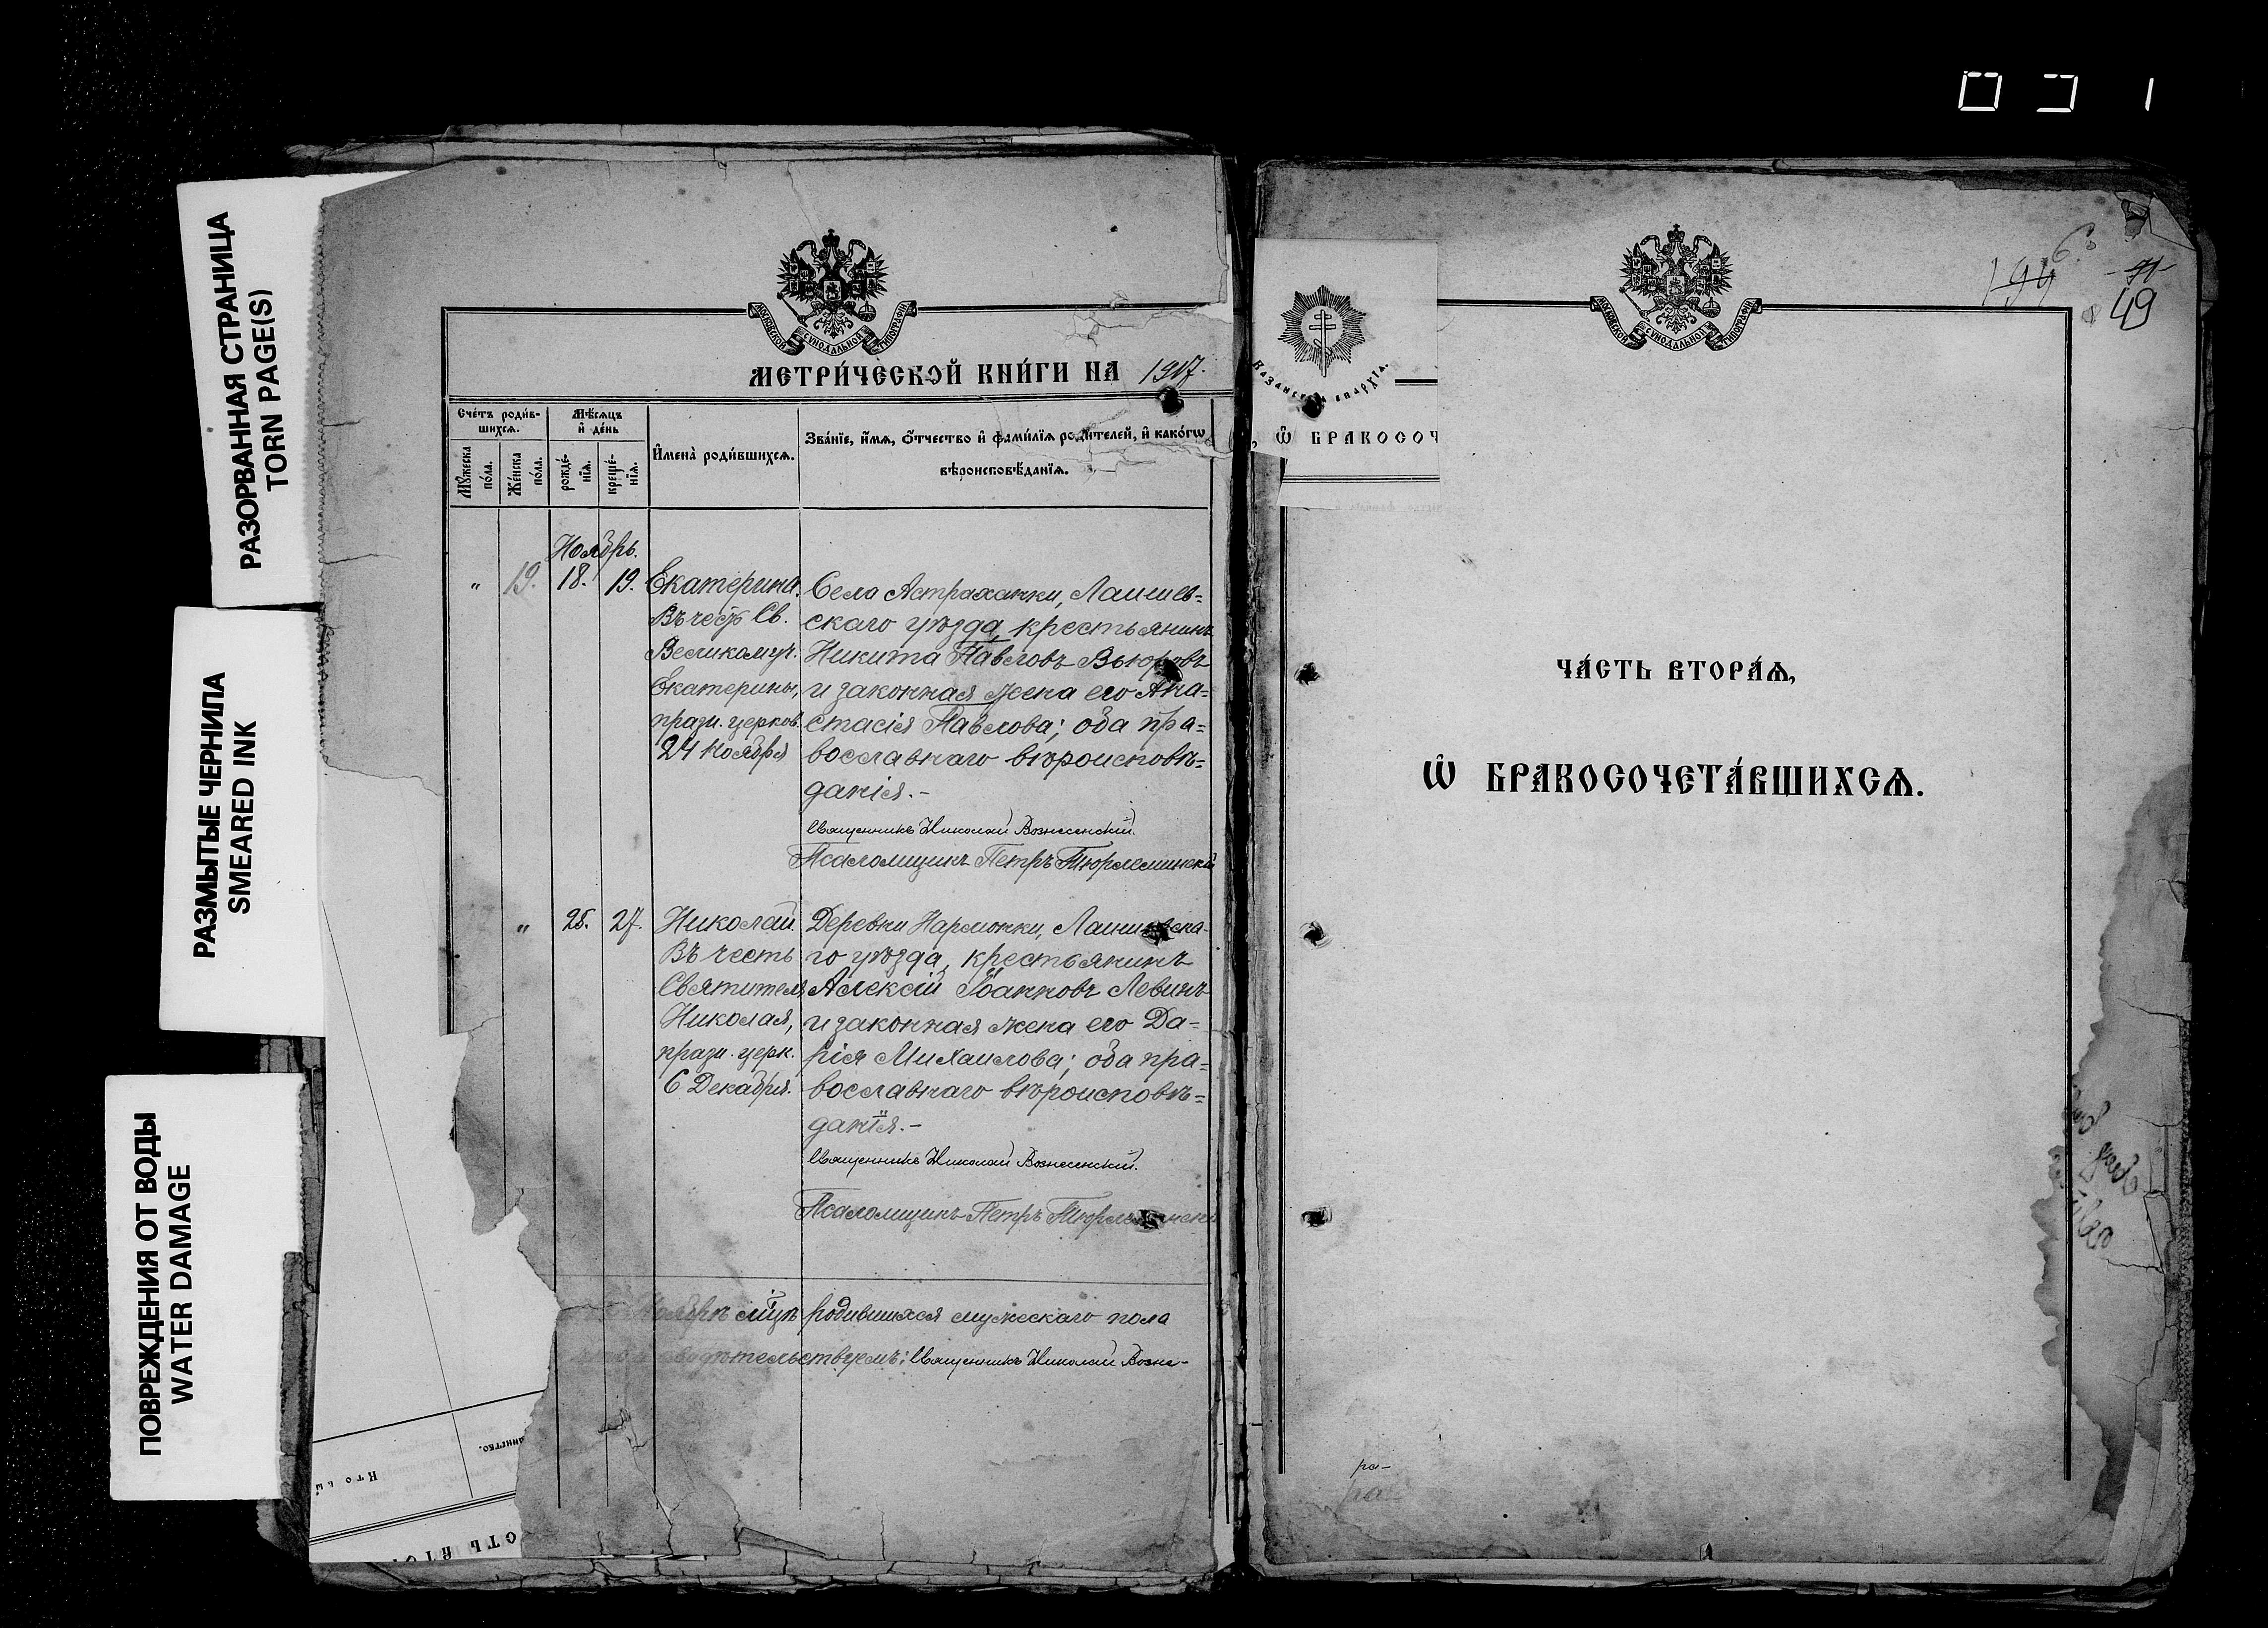 РАЗОРВАННАЯ СТРАНИЦА
TORN PAGE(S)
РАЗМЫТЫЕ ЧЕРНИЛА
SMEARED INK
ПОВРЕЖДЕНИЯ ОТ ВОДЫ
WATER DAMAGE
МОСКОВСКОЙ СУНОДАЛЬНОЙ ТИПОГРАФІИ
МЕТРИ́ЧЕСКОЙ КНИ́ГИ НА 1917.
Сче́тъ роди́в-
шихсѧ.
Мꙋ́жеска
по́ла.
Же́нска
по́ла.
Мѣ́сѧцъ
и҆ де́нь
рожде́-
нїѧ.
креще́-
нїѧ.
И҆мена̀ роди́вшихсѧ.
Зва́нїе, и҆́мѧ, ѻ҆́тчество и҆ фами́лїѧ роди́телей, и҆ како́гѡ
вѣроисповѣ́данїѧ.
Ноябрь.
" 19. 18. 19.
Екатерина.
Въ честь Св.
Великомуч.
Екатерины,
празн. церков.
24 Ноября
Села Астраханки, Лаишев=
скаго уѣзда, крестьянинъ
Никита Павловъ Вьюровъ
и законная жена его Ана=
стасія Павлова; оба пра=
вославнаго вѣроисповѣ=
данія.-
Священникъ Николай Вознесенскій.
Псаломщикъ Петръ Тюрлеминскій
" 25. 27.
Николай.
Въ честь
Святителя
Николая,
празн. церк.
6 Декабря.
Деревни Нармонки, Лаишевска-
го уѣзда, крестьянинъ
Алексій Іоанновъ Левинъ
и законная жена его Да=
рія Михаилова; оба пра=
вославнаго вѣроисповѣ=
данія.-
Священникъ Николай Вознесенскій.
Псаломщикъ Петръ
Ноябрѣ мцѣ родившихся мужескаго пола
свидѣтельствуемъ: Священникъ Николай Возне-
031
49
Казанская епархїа.
, Ѡ҆ БРАКОСОЧ
МОСКОВСКОЙ СУНОДАЛЬНОЙ ТИПОГРАФІИ
ЧА́СТЬ ВТОРА́Ѧ,
Ѡ҆ БРАКОСОЧЕТА́ВШИХСѦ.
ра-
ра-